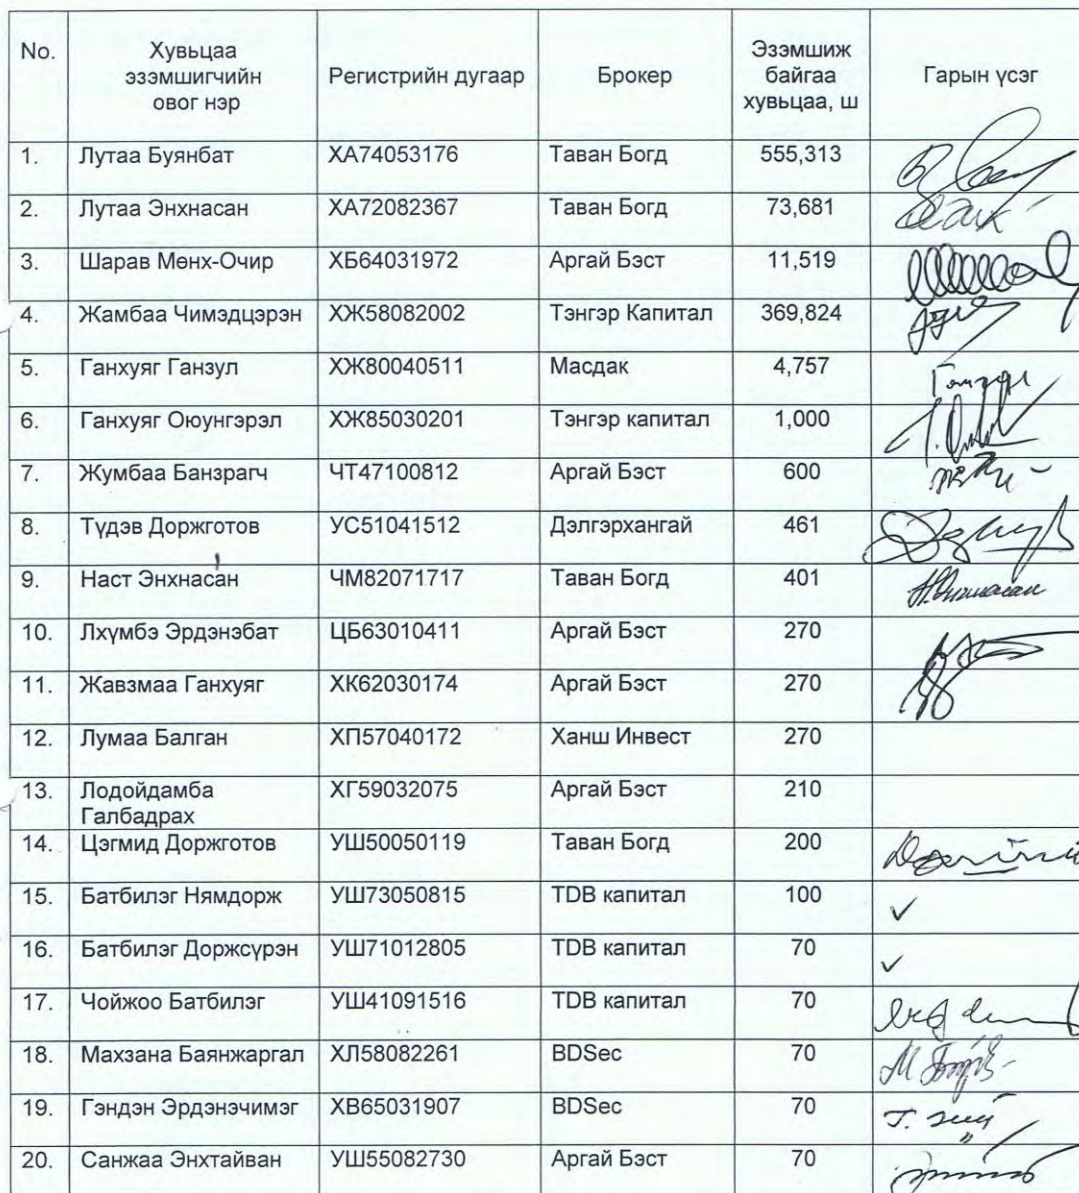 No. Хувьцаа эзэмшигчийн овог нэр Регистрийн дугаар Брокер Эзэмшиж байгаа хувьцаа, ш Гарын үсэг
1. Лутаа Буянбат ХА74053176 Таван Богд 555,313
2. Лутаа Энхнасан ХА72082367 Таван Богд 73,681
3. Шарав Мөнх-Очир ХБ64031972 Аргай Бэст 11,519
4. Жамбаа Чимэдцэрэн ХЖ58082002 Тэнгэр Капитал 369,824
5. Ганхуяг Ганзул ХЖ80040511 Масдак 4,757
6. Ганхуяг Оюунгэрэл ХЖ85030201 Тэнгэр капитал 1,000
7. Жумбаа Банзрагч ЧТ47100812 Аргай Бэст 600
8. Түдэв Доржготов УС51041512 Дэлгэрхангай 461
9. Наст Энхнасан ЧМ82071717 Таван Богд 401
10. Лхүмбэ Эрдэнэбат ЦБ63010411 Аргай Бэст 270
11. Жавзмаа Ганхуяг ХК62030174 Аргай Бэст 270
12. Лумаа Балган ХП57040172 Ханш Инвест 270
13. Лодойдамба Галбадрах ХГ59032075 Аргай Бэст 210
14. Цэгмид Доржготов УШ50050119 Таван Богд 200
15. Батбилэг Нямдорж УШ73050815 TDB капитал 100 ✓
16. Батбилэг Доржсүрэн УШ71012805 TDB капитал 70 ✓
17. Чойжоо Батбилэг УШ41091516 TDB капитал 70
18. Махзана Баянжаргал ХЛ58082261 BDSec 70
19. Гэндэн Эрдэнэчимэг ХВ65031907 BDSec 70
20. Санжаа Энхтайван УШ55082730 Аргай Бэст 70